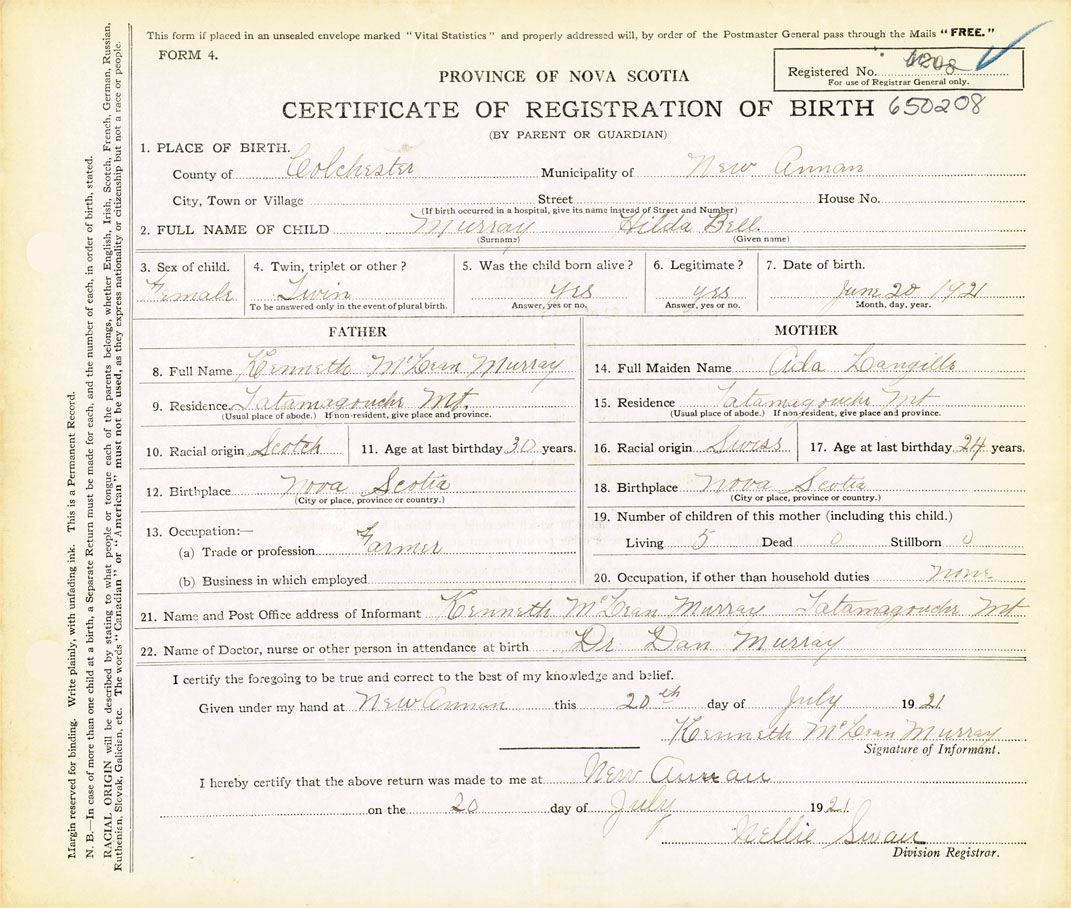 This form if placed in an unsealed envelope marked "Vital Statistics" and properly addressed will, by order of the Postmaster General pass through the Mails "FREE."
FORM 4.
PROVINCE OF NOVA SCOTIA
Registered No. 6208
For use of Registrar General only.
CERTIFICATE OF REGISTRATION OF BIRTH 650208
(BY PARENT OR GUARDIAN)
1. PLACE OF BIRTH.
County of Colchester Municipality of New Annan
City, Town or Village Street House No.
(If birth occurred in a hospital, give its name instead of Street and Number)
2. FULL NAME OF CHILD Murray Hilda Bell.
(Surname) (Given name)
3. Sex of child. 4. Twin, triplet or other? 5. Was the child born alive? 6. Legitimate? 7. Date of birth.
Female Twin yes yes June 20 1921
To be answered only in the event of plural birth. Answer, yes or no. Answer, yes or no. Month, day, year.
FATHER MOTHER
8. Full Name Kenneth McLean Murray
14. Full Maiden Name Ada Langille
9. Residence. Tatamagouche Mt.
(Usual place of abode.) If non-resident, give place and province.
15. Residence Tatamagouche Mt
(Usual place of abode.) If non-resident, give place and province.
10. Racial origin Scotch 11. Age at last birthday 30 years.
16. Racial origin Swiss 17. Age at last birthday 24 years.
12. Birthplace Nova Scotia
(City or place, province or country.)
18. Birthplace Nova Scotia
(City or place, province or country.)
13. Occupation:—
(a) Trade or profession Farmer
(b) Business in which employed
19. Number of children of this mother (including this child.)
Living 5 Dead 0 Stillborn 0
20. Occupation, if other than household duties none
21. Name and Post Office address of Informant Kenneth McLean Murray Tatamagouche Mt
22. Name of Doctor, nurse or other person in attendance at birth Dr Dan Murray
I certify the foregoing to be true and correct to the best of my knowledge and belief.
Given under my hand at New Annan this 20th day of July 1921
Kenneth McLean Murray
Signature of Informant.
I hereby certify that the above return was made to me at New Annan
on the 20 day of July 1921
Nellie Swan
Division Registrar.
Margin reserved for binding. Write plainly, with unfading ink. This is a Permanent Record.
N. B.—In case of more than one child at a birth, a Separate Return must be made for each, and the number of each, in order of birth, stated.
RACIAL ORIGIN will be described by stating to what people or tongue each of the parents belongs, whether English, Irish, Scotch, French, German, Russian,
Ruthenian, Slovak, Galician, etc. The words "Canadian" or "American" must not be used, as they express nationality or citizenship but not a race or people.